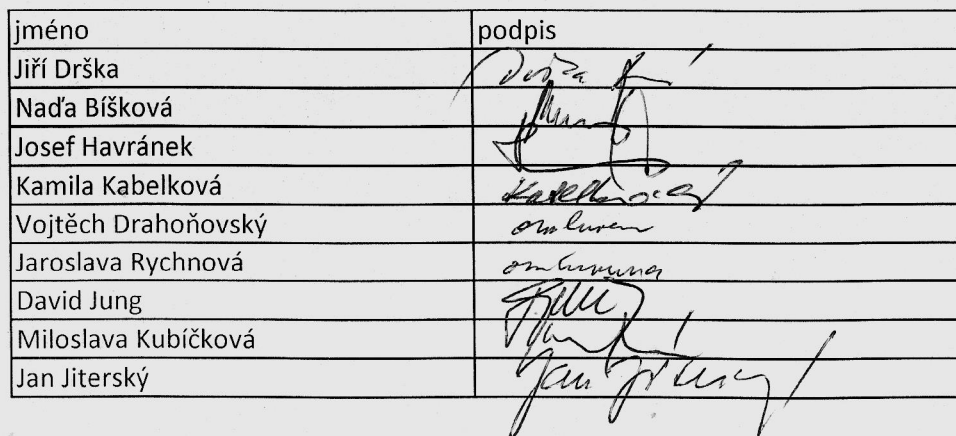 jméno podpis
Jiří Drška Drška
Naďa Bíšková
Josef Havránek
Kamila Kabelková Kabelková
Vojtěch Drahoňovský omluven
Jaroslava Rychnová omluvena
David Jung
Miloslava Kubíčková
Jan Jiterský Jan Jiterský